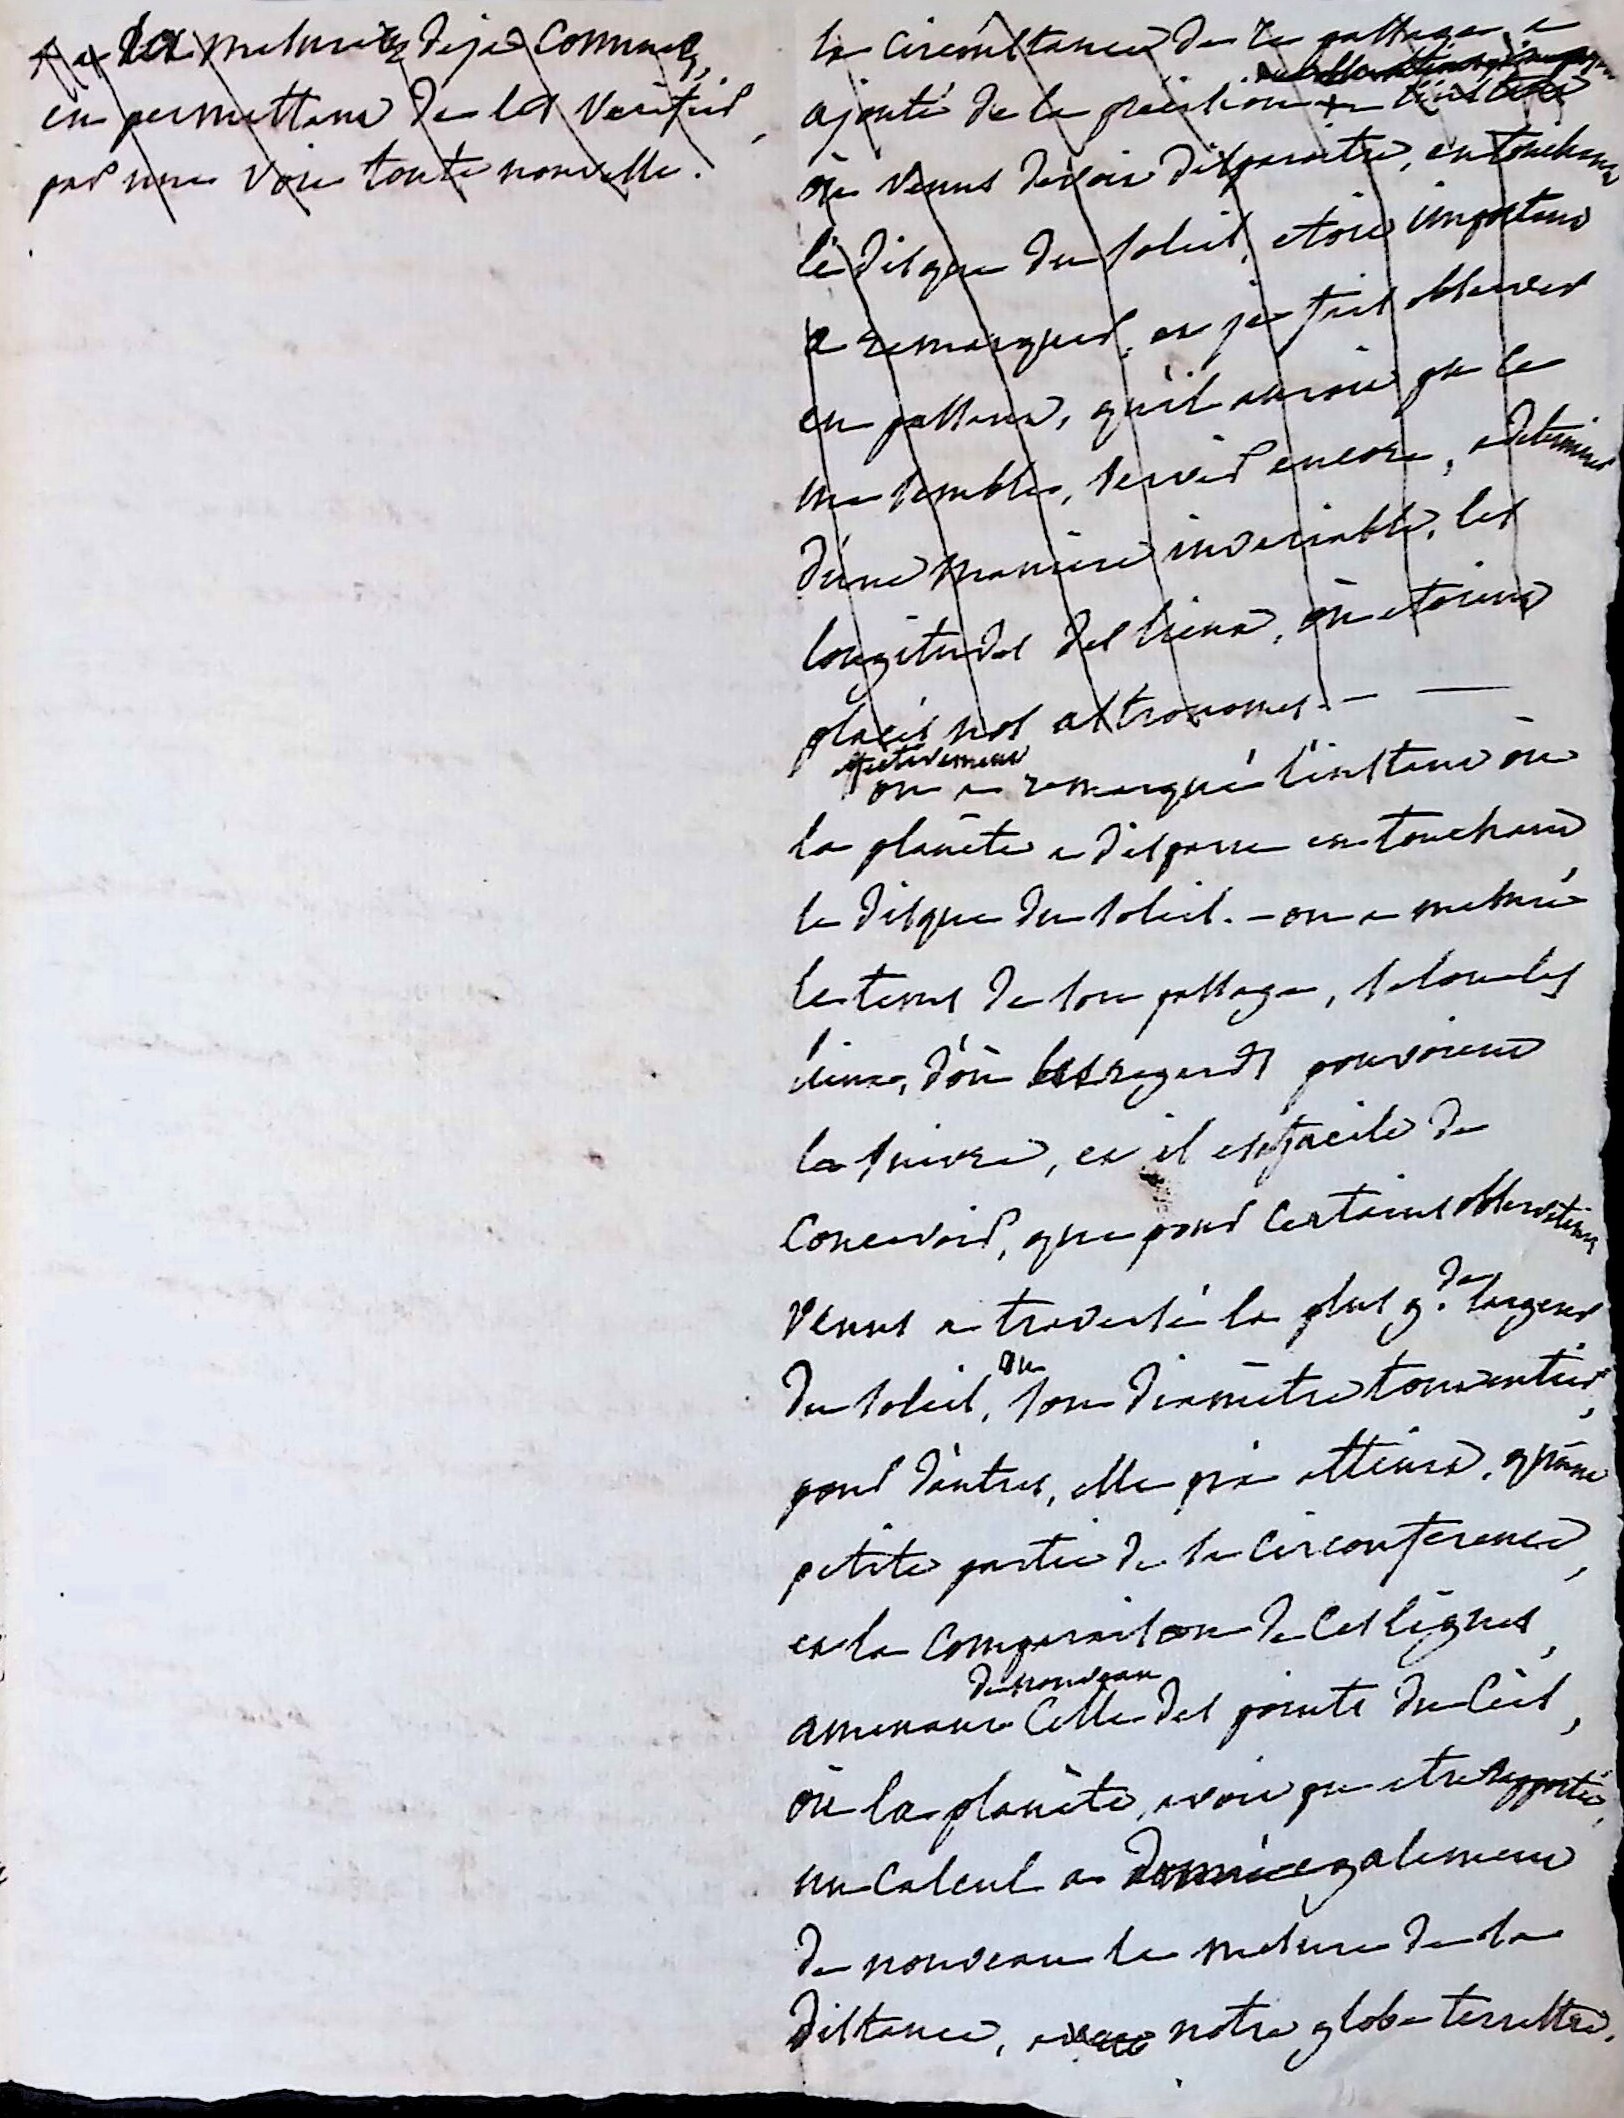 + a des mesures deja connues,
en permettant de les verifier
par une voie toute nouvelle.
la circonstance de ce passage, a
ajouté de la précision + l'instant
où venus devoit disparoitre, en touchant
le disque du soleil, etoit important
a remarquer, et je fais observer
en passant, qu'il auroit pu ce
me semble, servir encore, a determiner
d'une manière invariable, les
longitudes des lieux, où etoient
placés nos astronomes. — —
effectivement
on a remarqué l'instant où
la planète a disparu en touchant
le disque du soleil. - on a mesuré
le tems de son passage, selon les
lieux, d'où les regards pouvoient
la suivre, et il est facile de
concevoir, que pour certains observateurs
venus a traversé la plus g.de largeur
du soleil, ou son diamètre tout entier,
pour d'autres, elle n'a atteint, qu'une
petite partie de sa circonference,
et la comparaison de ces lignes,
de nouveau
amenant celle des points du ciel,
où la planète, avoit pu etre rapportée,
un calcul a donné egalement
de nouveau la mesure de la
distance, avec notre globe terrestre.